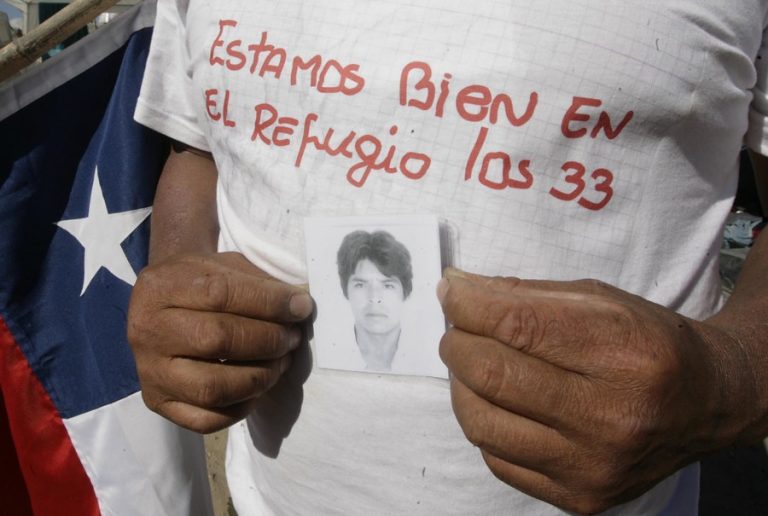 Estamos Bien en
El Refugio los 33